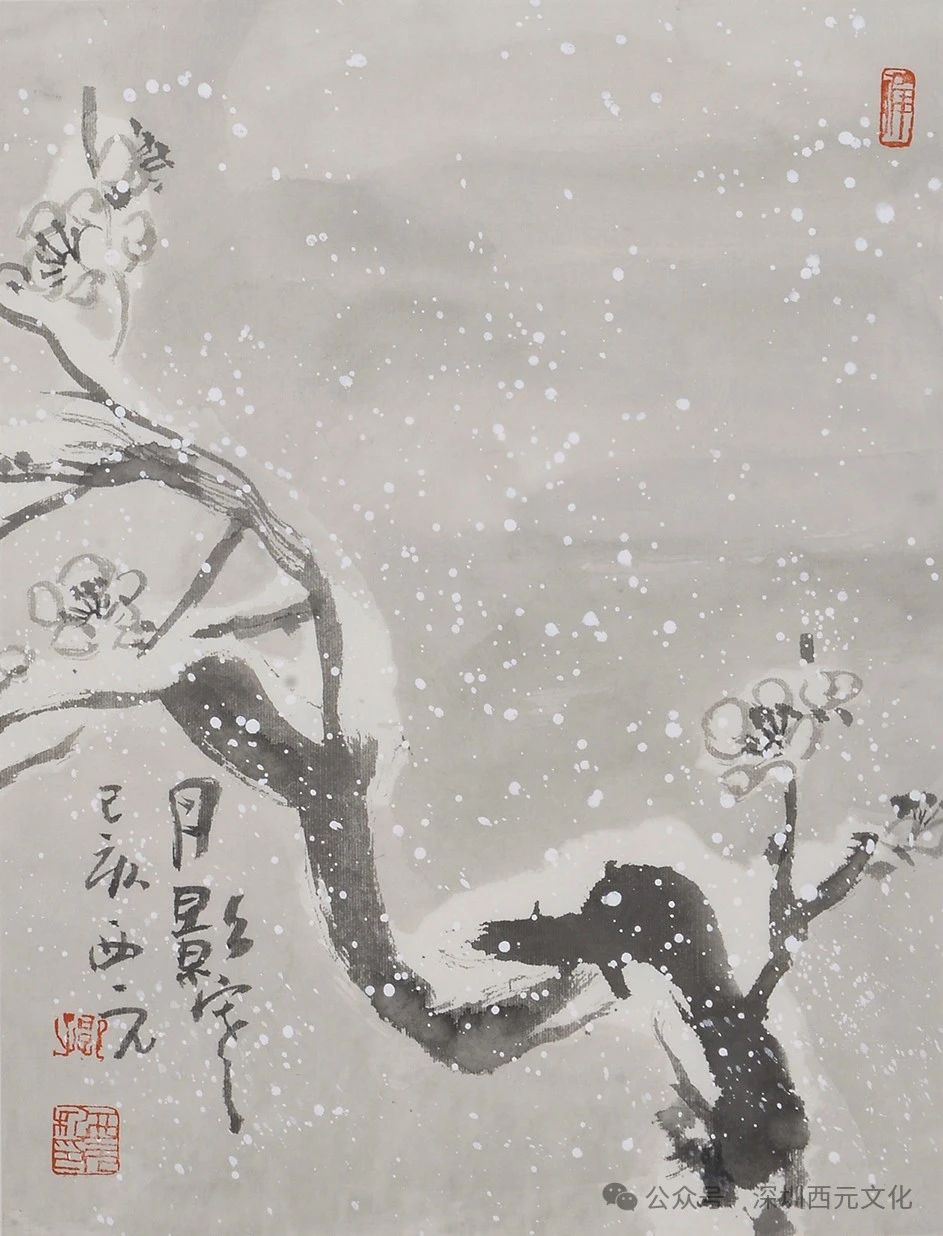 月影寒
己亥西元
公众号 · 深圳西元文化